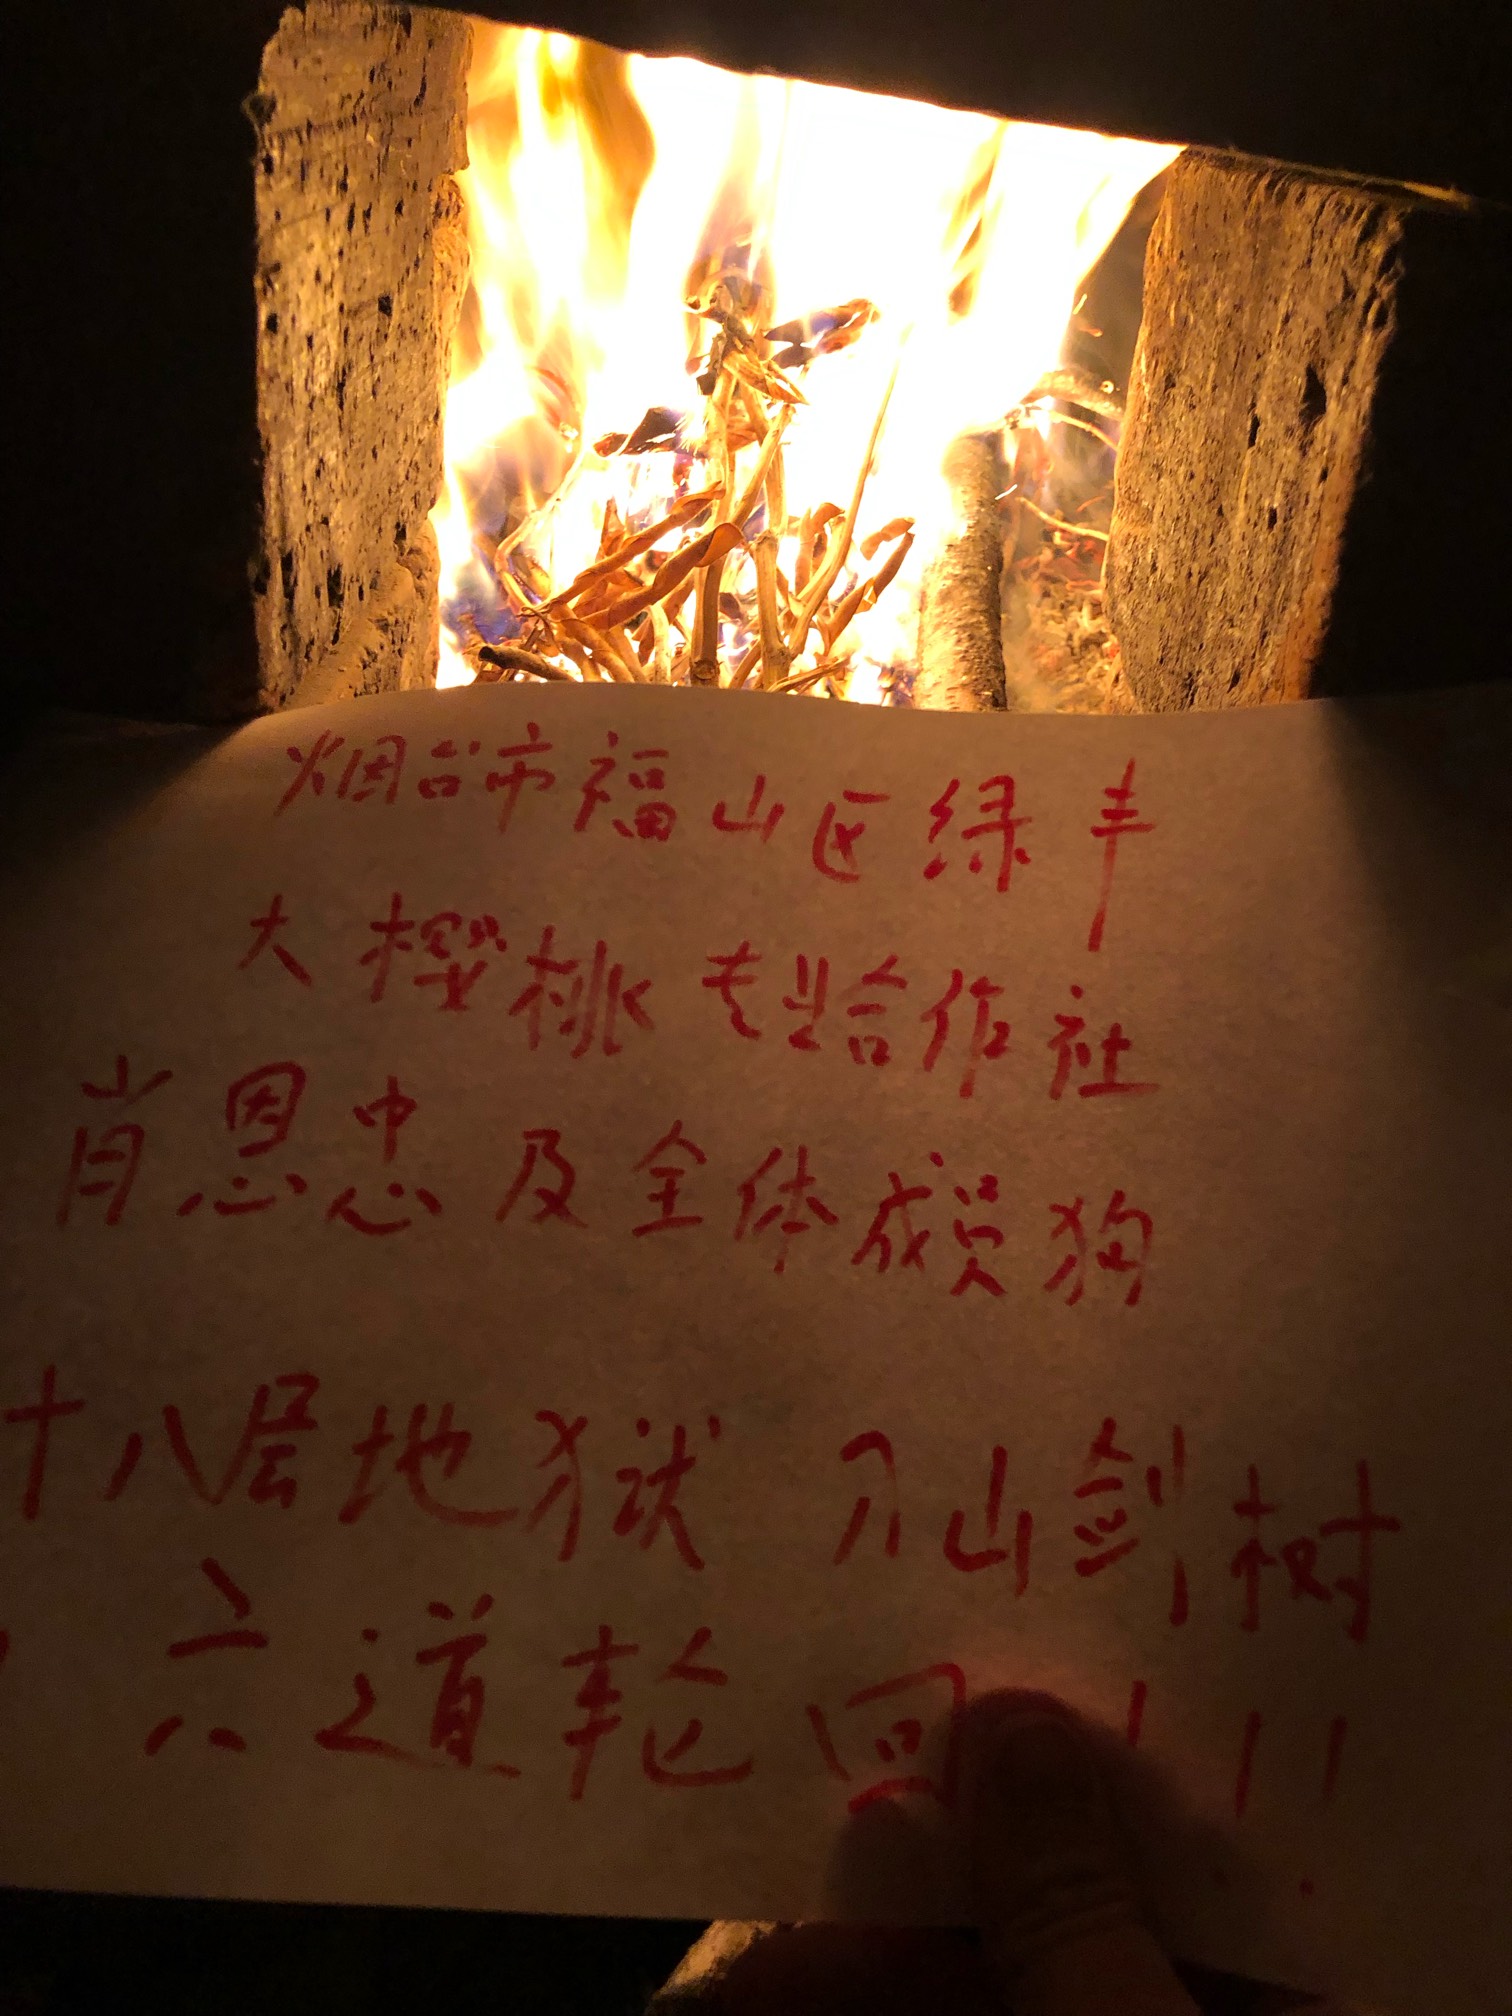 烟台市福山区绿丰
大樱桃专业合作社
肖恩忠及全体成员狗
十八层地狱 刀山剑树
六道轮回!!!